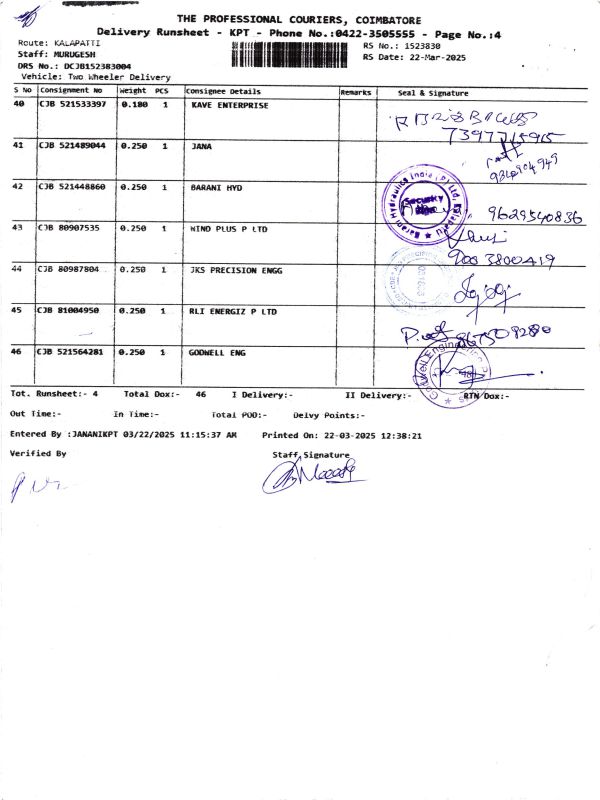 THE PROFESSIONAL COURIERS, COIMBATORE
Delivery Runsheet - KPT - Phone No.:0422-3505555 - Page No.:4
Route: KALAPATTI
RS No.: 1523830
Staff: MURUGESH
RS Date: 22-Mar-2025
DRS No.: DCJB152383004
Vehicle: Two Wheeler Delivery
S No Consignment No Weight PCS Consignee Details Remarks Seal & Signature
40 CJB 521533397 0.180 1 KAVE ENTERPRISE
7397715915
41 CJB 521489044 0.250 1 JANA
42 CJB 521448860 0.250 1 BARANI HYD
Barani Hydraulics India (P) Ltd,
Security
9629540836
43 CJB 80907535 0.250 1 WIND PLUS P LTD
9003800419
44 CJB 80987804 0.250 1 JKS PRECISION ENGG
45 CJB 81004950 0.250 1 RLI ENERGIZ P LTD
46 CJB 521564281 0.250 1 GODWELL ENG
Tot. Runsheet:- 4 Total Dox:- 46 I Delivery:- II Delivery:- RTN Dox:-
Out Time:- In Time:- Total POD:- Delvy Points:-
Entered By :JANANIKPT 03/22/2025 11:15:37 AM Printed On: 22-03-2025 12:38:21
Verified By Staff Signature